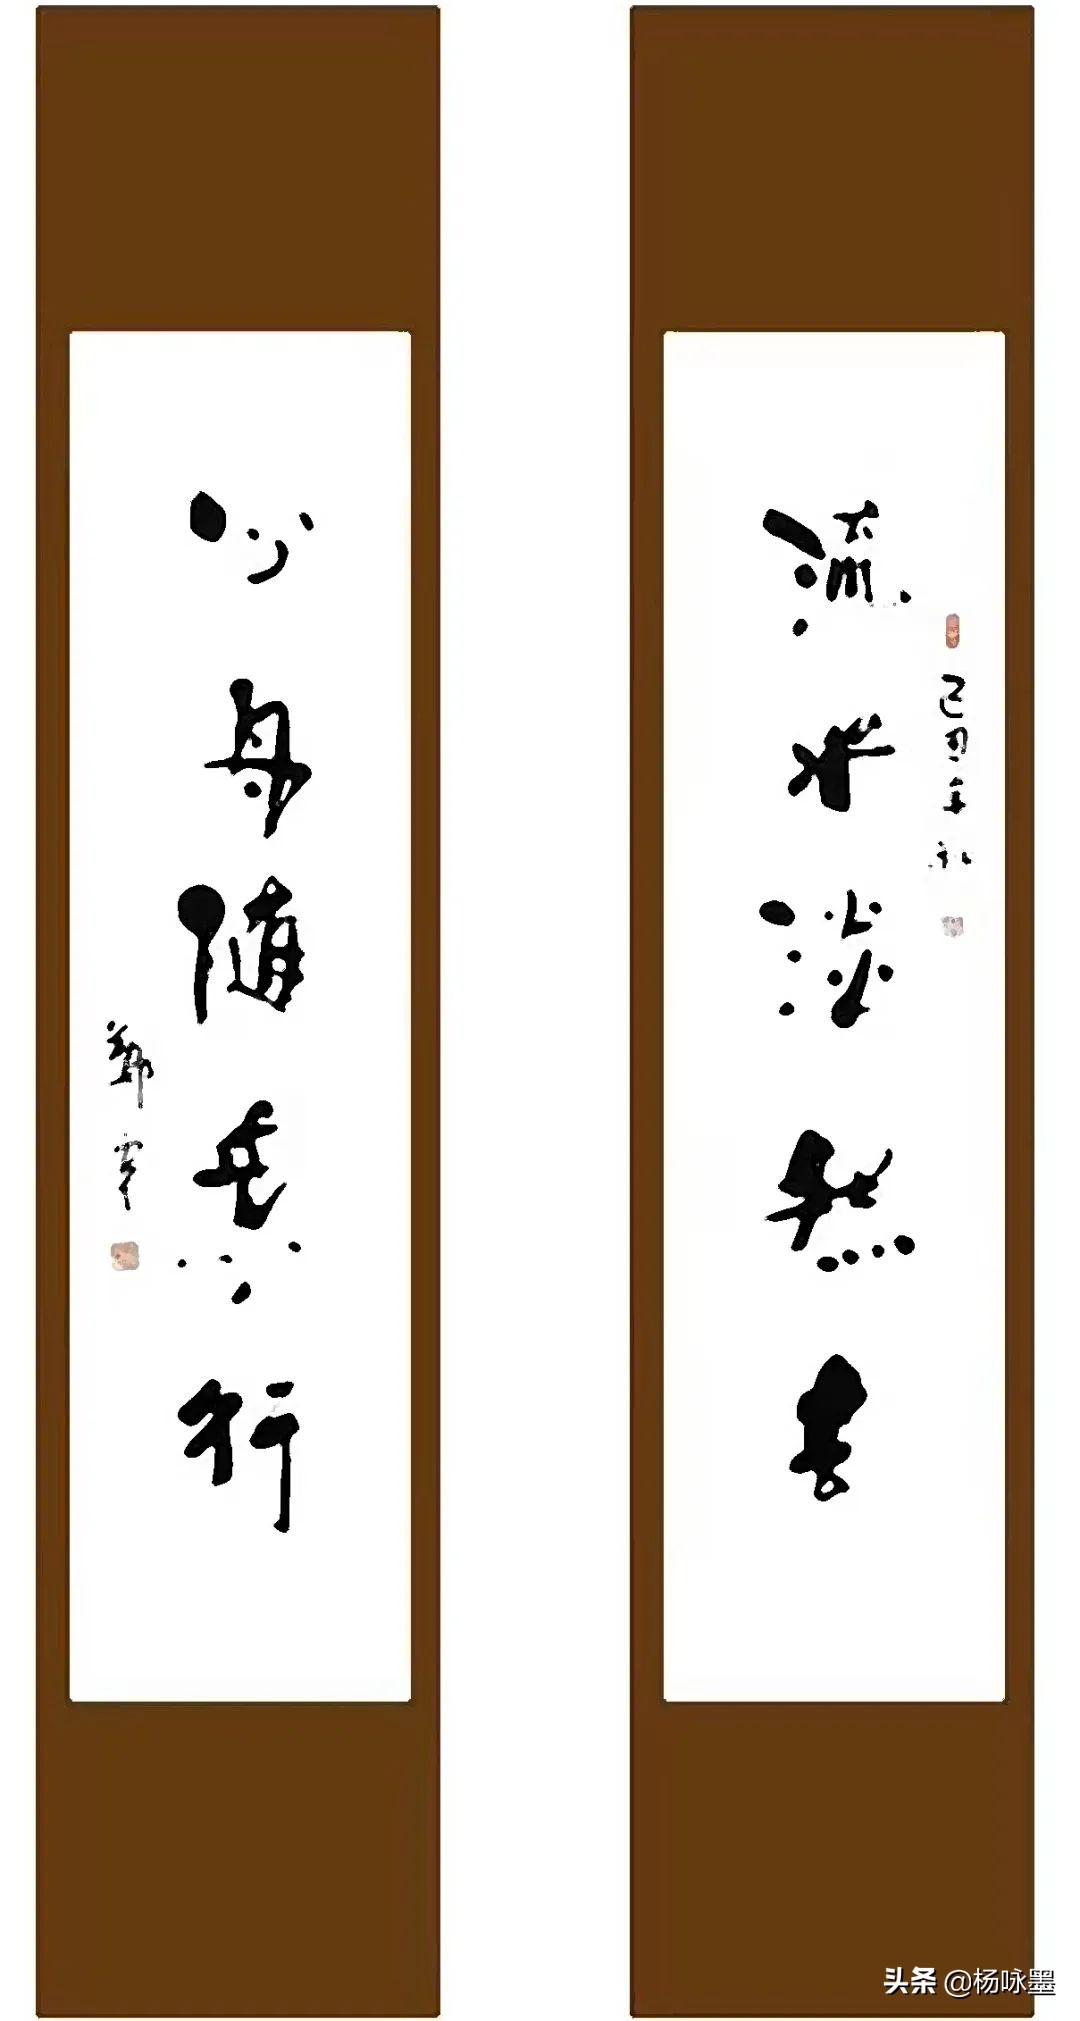 流水淡然去
己丑年初
心舟随意行
头条 @杨咏墨